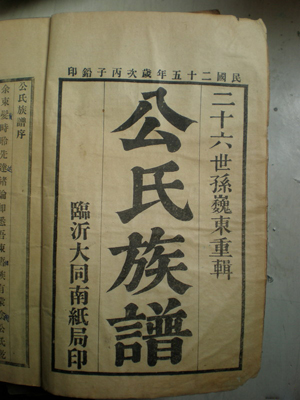 民國二十五年歲次丙子鉛印
二十六世孫巍東重輯
公氏族譜
臨沂大同南紙局印
公氏族譜序